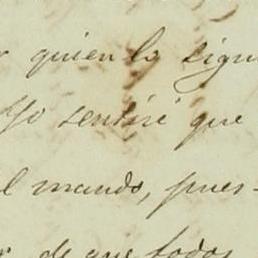 quien lo sigu
Yo sentiré que
el mando, pues-
de que todos